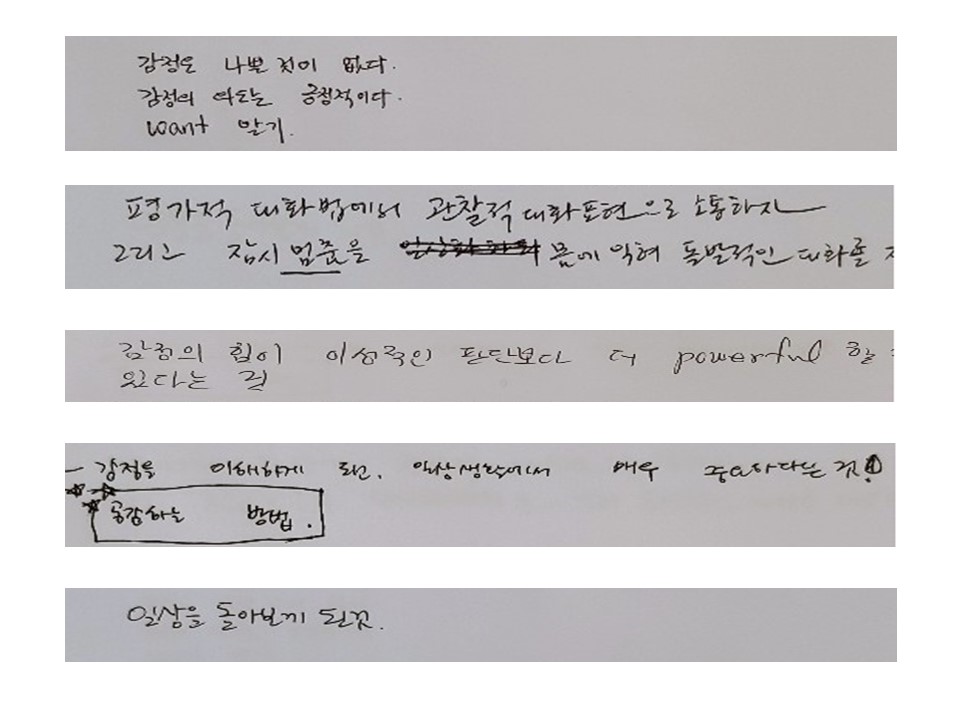 감정은 나쁜 것이 없다.
감정의 의도는 긍정적이다.
want 알기.
평가적 대화법에서 관찰적 대화표현으로 소통하자
그리고 잠시 멈춤을 몸에 익혀 돌발적인 대화를
감정의 힘이 이성적인 판단보다 더 powerful 할
있다는 것
- 감정을 이해하게 되면, 일상생활에서 매우 중요하다는 것!
공감하는 방법.
일상을 돌아보게 된것.